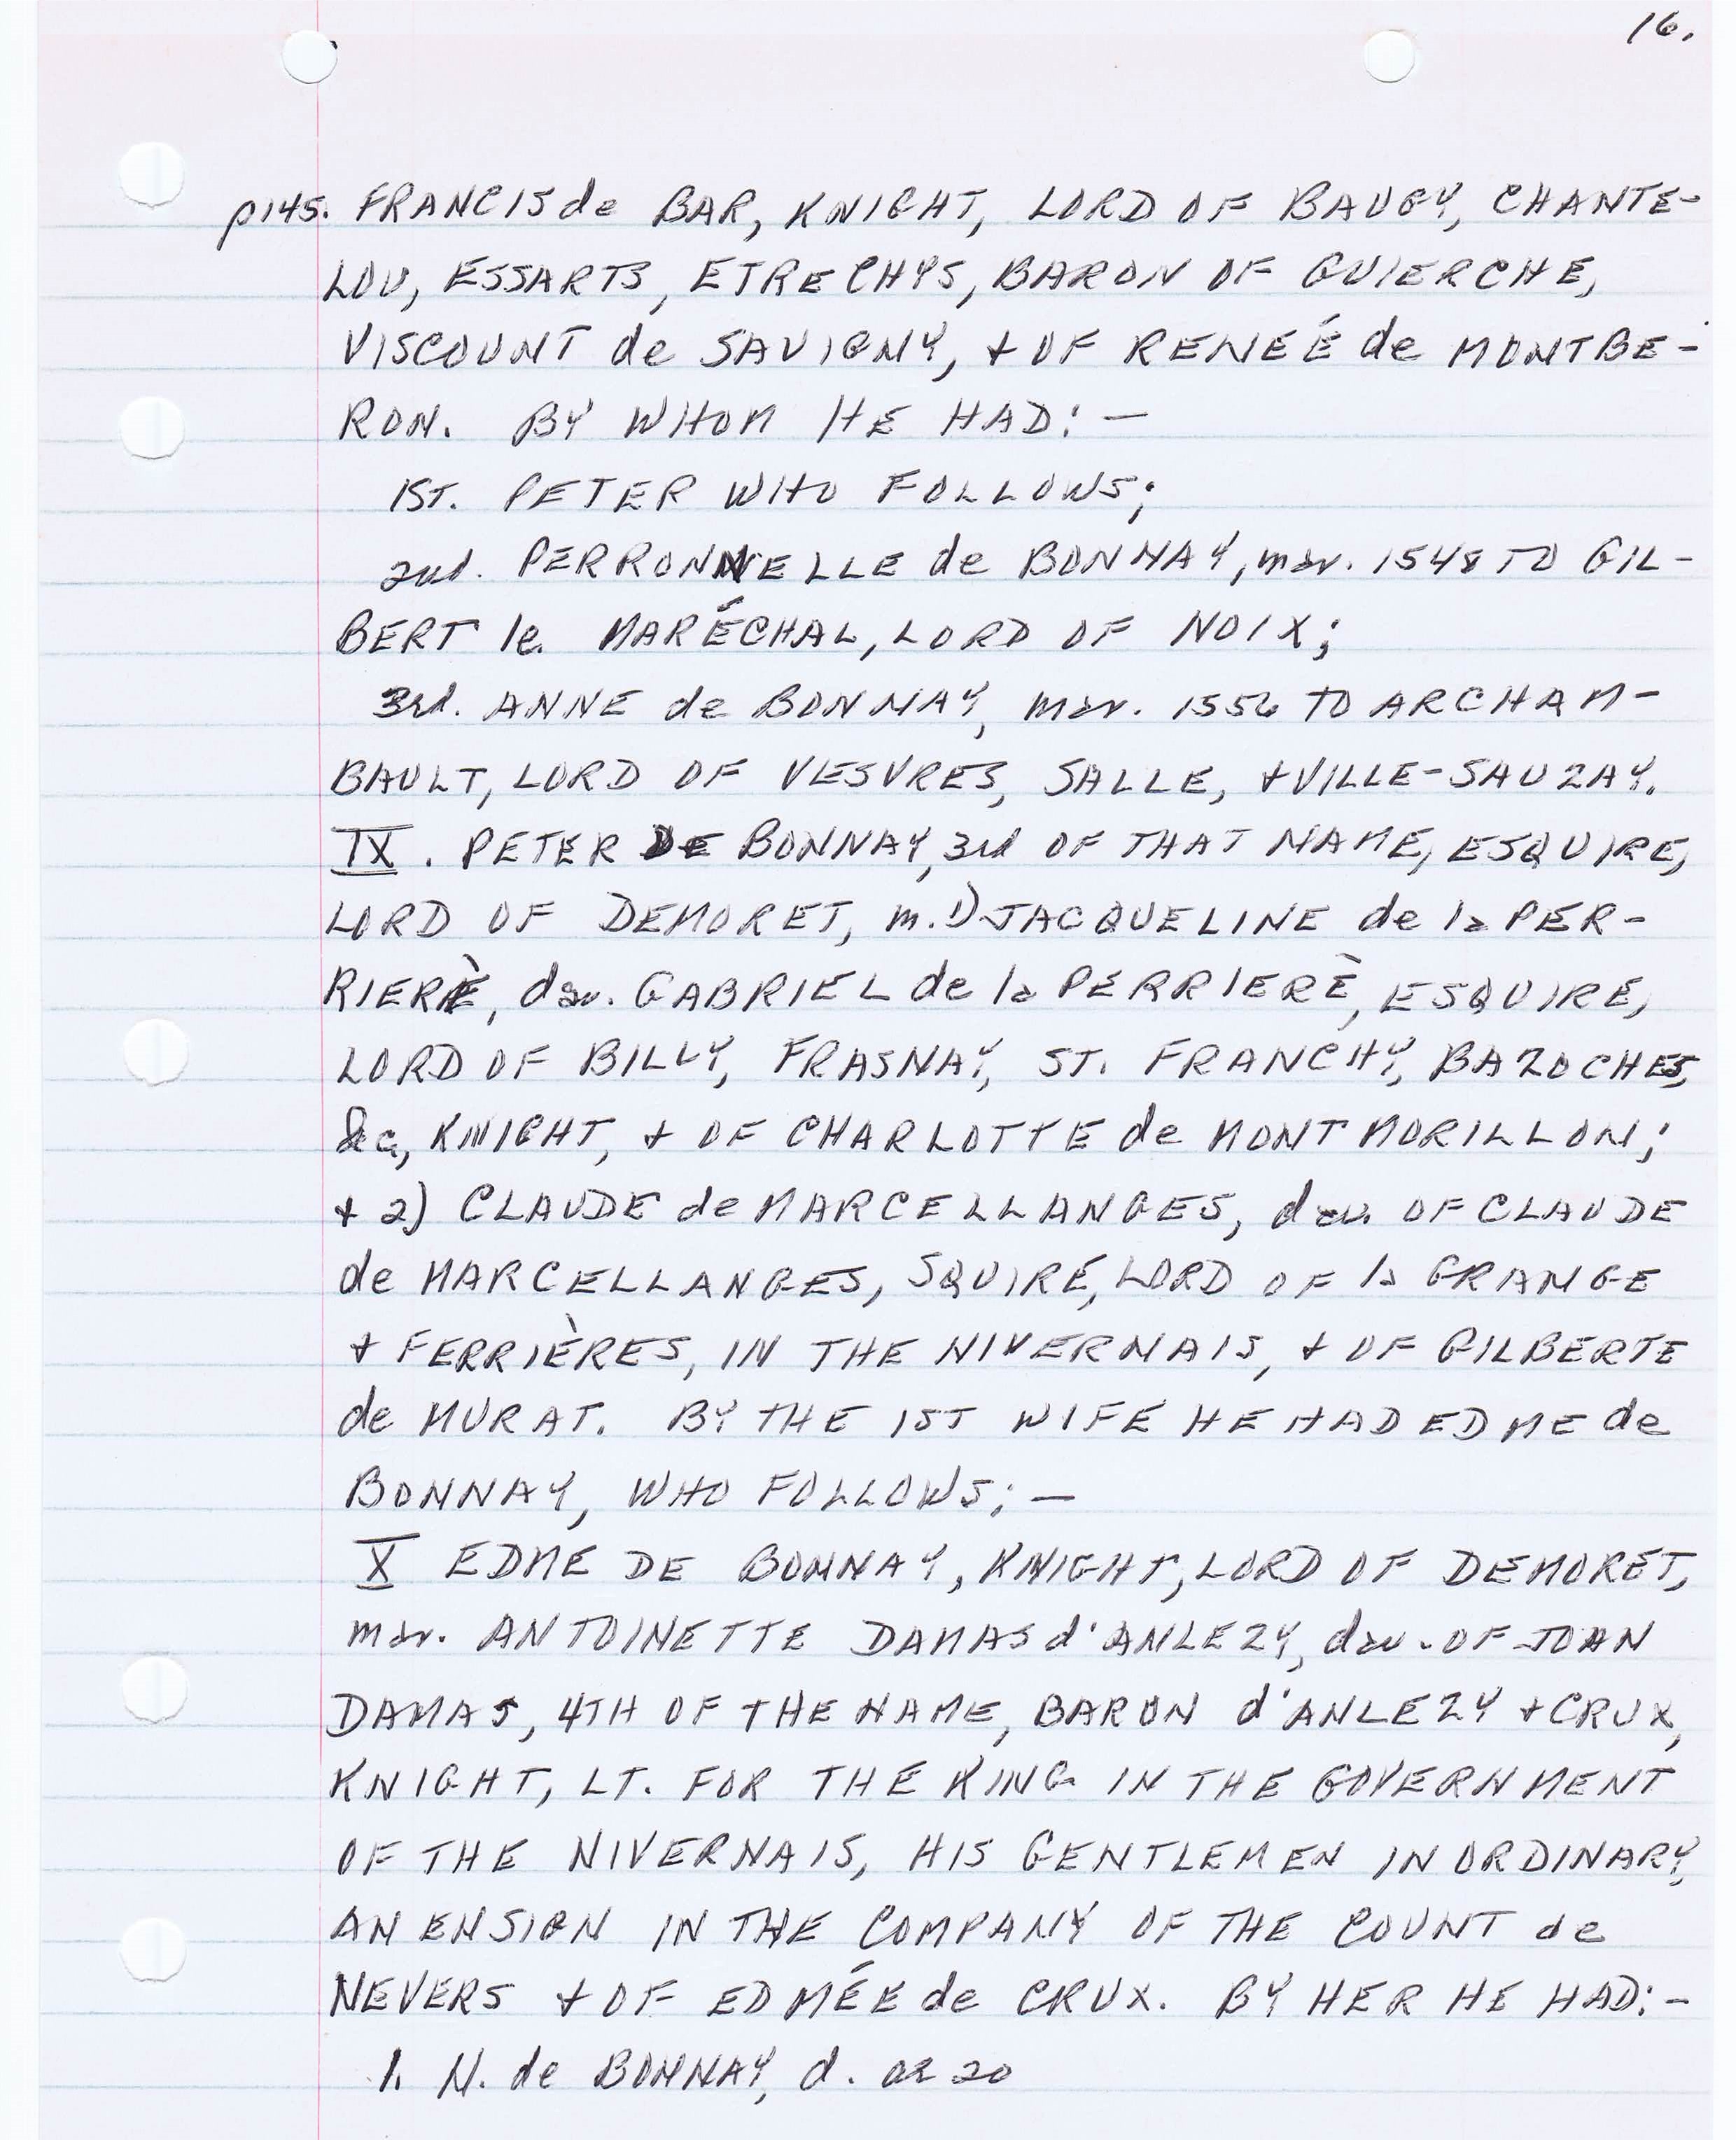 16.
p145. FRANCIS de BAR, KNIGHT, LORD OF BAUGY, CHANTE-
LOU, ESSARTS, ETRECHYS, BARON OF GUIERCHE,
VISCOUNT de SAVIGNY, + OF RENEÉ de MONTBE-
RON. BY WHOM HE HAD: —
1ST. PETER WHO FOLLOWS;
2nd. PERRONNELLE de BONNAY, mar. 1548 TO GIL-
BERT le MARÉCHAL, LORD OF NOIX;
3rd. ANNE de BONNAY, mar. 1556 TO ARCHAM-
BAULT, LORD OF VESVRES, SALLE, + VILLE-SAUZAY.
IX. PETER DE BONNAY, 3rd OF THAT NAME, ESQUIRE,
LORD OF DEMORET, m. 1) JACQUELINE de la PER-
RIERÈ, dau. GABRIEL de la PERRIERÈ, ESQUIRE,
LORD OF BILLY, FRASNAY, ST. FRANCHY, BAZOCHES,
&c, KNIGHT, + OF CHARLOTTE de MONTMORILLON;
+ 2) CLAUDE de MARCELLANGES, dau. OF CLAUDE
de MARCELLANGES, SQUIRE, LORD OF la GRANGE
+ FERRIÈRES, IN THE NIVERNAIS, + OF GILBERTE
de MURAT. BY THE 1ST WIFE HE HAD EDME de
BONNAY, WHO FOLLOWS; —
X EDME DE BONNAY, KNIGHT, LORD OF DEMORET,
mar. ANTOINETTE DAMAS d'ANLEZY, dau. OF JOAN
DAMAS, 4TH OF THE NAME, BARON d'ANLEZY + CRUX,
KNIGHT, LT. FOR THE KING IN THE GOVERNMENT
OF THE NIVERNAIS, HIS GENTLEMEN IN ORDINARY,
AN ENSIGN IN THE COMPANY OF THE COUNT de
NEVERS + OF EDMÉE de CRUX. BY HER HE HAD: -
1. N. de BONNAY, d. at 20